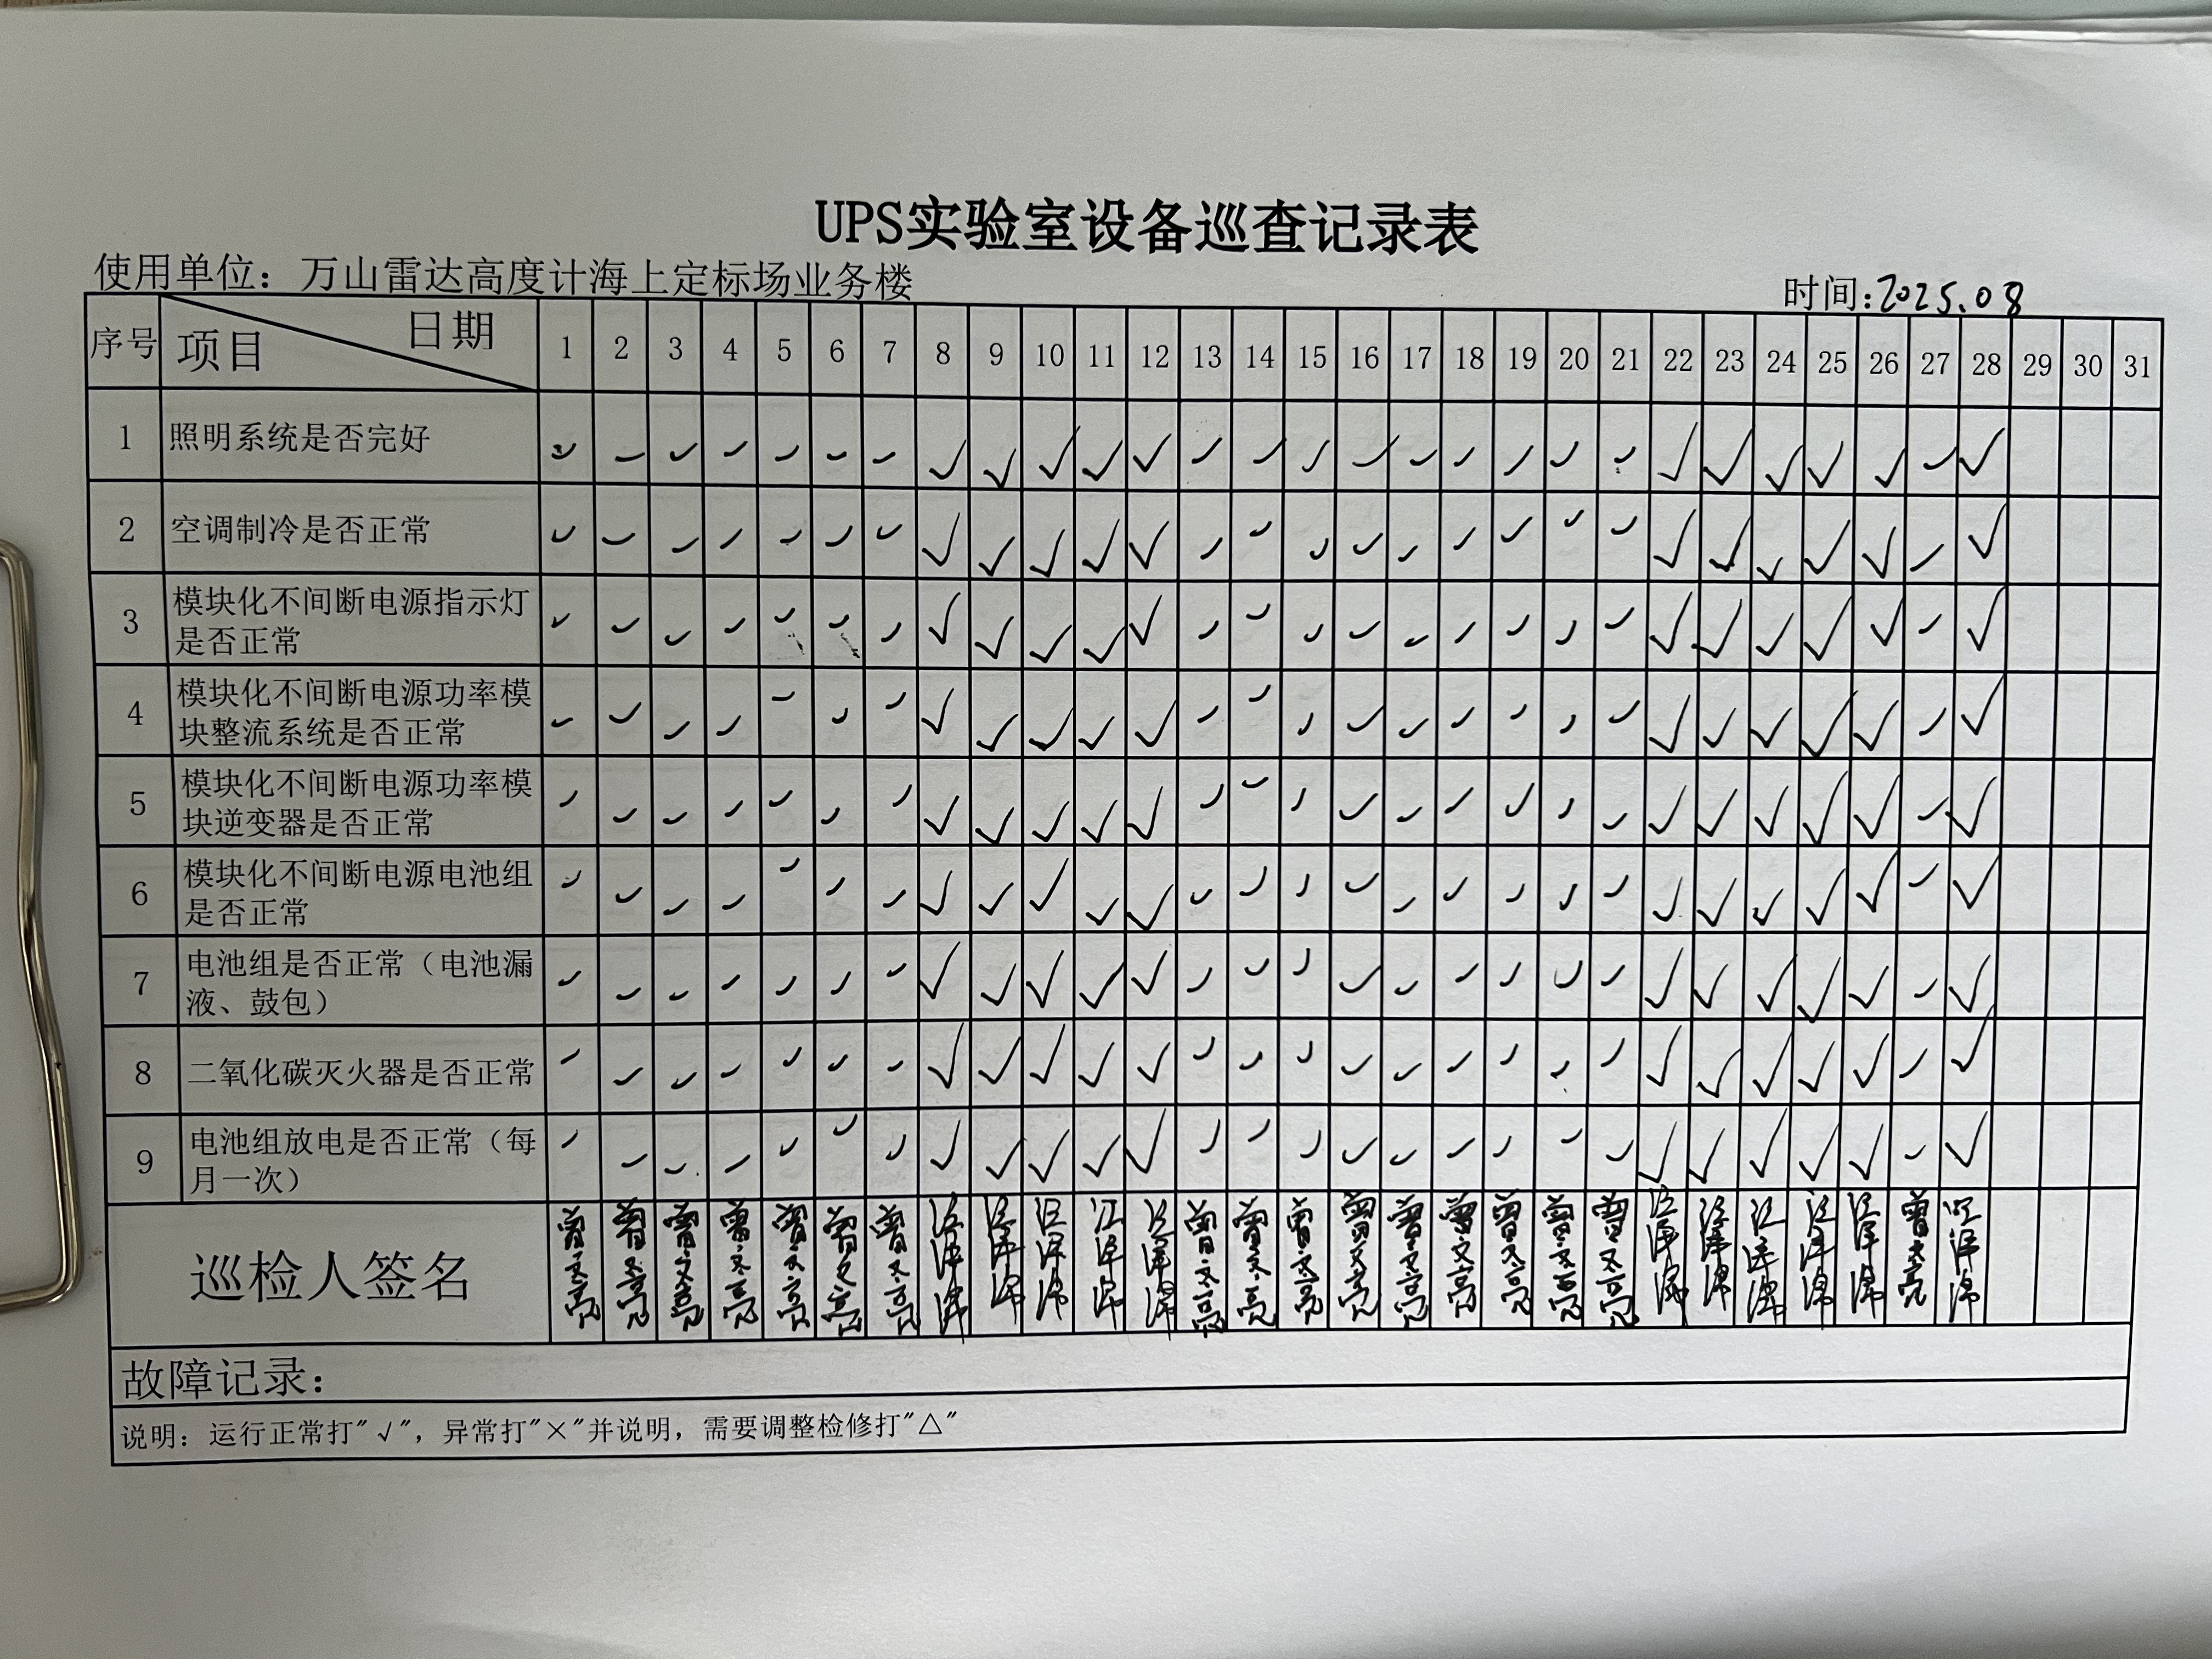 UPS实验室设备巡查记录表
使用单位：万山雷达高度计海上定标场业务楼 时间:2025.08
序号 项目 日期 1 2 3 4 5 6 7 8 9 10 11 12 13 14 15 16 17 18 19 20 21 22 23 24 25 26 27 28 29 30 31
1 照明系统是否完好 ✓ ✓ ✓ ✓ ✓ ✓ ✓ ✓ ✓ ✓ ✓ ✓ ✓ ✓ ✓ ✓ ✓ ✓ ✓ ✓ ✓ ✓ ✓ ✓ ✓ ✓ ✓ ✓
2 空调制冷是否正常 ✓ ✓ ✓ ✓ ✓ ✓ ✓ ✓ ✓ ✓ ✓ ✓ ✓ ✓ ✓ ✓ ✓ ✓ ✓ ✓ ✓ ✓ ✓ ✓ ✓ ✓ ✓ ✓
3 模块化不间断电源指示灯
是否正常 ✓ ✓ ✓ ✓ ✓ ✓ ✓ ✓ ✓ ✓ ✓ ✓ ✓ ✓ ✓ ✓ ✓ ✓ ✓ ✓ ✓ ✓ ✓ ✓ ✓ ✓ ✓ ✓
4 模块化不间断电源功率模
块整流系统是否正常 ✓ ✓ ✓ ✓ ✓ ✓ ✓ ✓ ✓ ✓ ✓ ✓ ✓ ✓ ✓ ✓ ✓ ✓ ✓ ✓ ✓ ✓ ✓ ✓ ✓ ✓ ✓ ✓
5 模块化不间断电源功率模
块逆变器是否正常 ✓ ✓ ✓ ✓ ✓ ✓ ✓ ✓ ✓ ✓ ✓ ✓ ✓ ✓ ✓ ✓ ✓ ✓ ✓ ✓ ✓ ✓ ✓ ✓ ✓ ✓ ✓ ✓
6 模块化不间断电源电池组
是否正常 ✓ ✓ ✓ ✓ ✓ ✓ ✓ ✓ ✓ ✓ ✓ ✓ ✓ ✓ ✓ ✓ ✓ ✓ ✓ ✓ ✓ ✓ ✓ ✓ ✓ ✓ ✓ ✓
7 电池组是否正常（电池漏
液、鼓包） ✓ ✓ ✓ ✓ ✓ ✓ ✓ ✓ ✓ ✓ ✓ ✓ ✓ ✓ ✓ ✓ ✓ ✓ ✓ ✓ ✓ ✓ ✓ ✓ ✓ ✓ ✓ ✓
8 二氧化碳灭火器是否正常 ✓ ✓ ✓ ✓ ✓ ✓ ✓ ✓ ✓ ✓ ✓ ✓ ✓ ✓ ✓ ✓ ✓ ✓ ✓ ✓ ✓ ✓ ✓ ✓ ✓ ✓ ✓ ✓
9 电池组放电是否正常（每
月一次） ✓ ✓ ✓ ✓ ✓ ✓ ✓ ✓ ✓ ✓ ✓ ✓ ✓ ✓ ✓ ✓ ✓ ✓ ✓ ✓ ✓ ✓ ✓ ✓ ✓ ✓ ✓ ✓
巡检人签名 曾文亮 曾文亮 曾文亮 曾文亮 曾文亮 曾文亮 曾文亮 曾文亮 曾文亮 曾文亮 曾文亮 曾文亮 曾文亮 曾文亮 曾文亮 曾文亮 曾文亮
故障记录：
说明：运行正常打"√"，异常打"×"并说明，需要调整检修打"△"